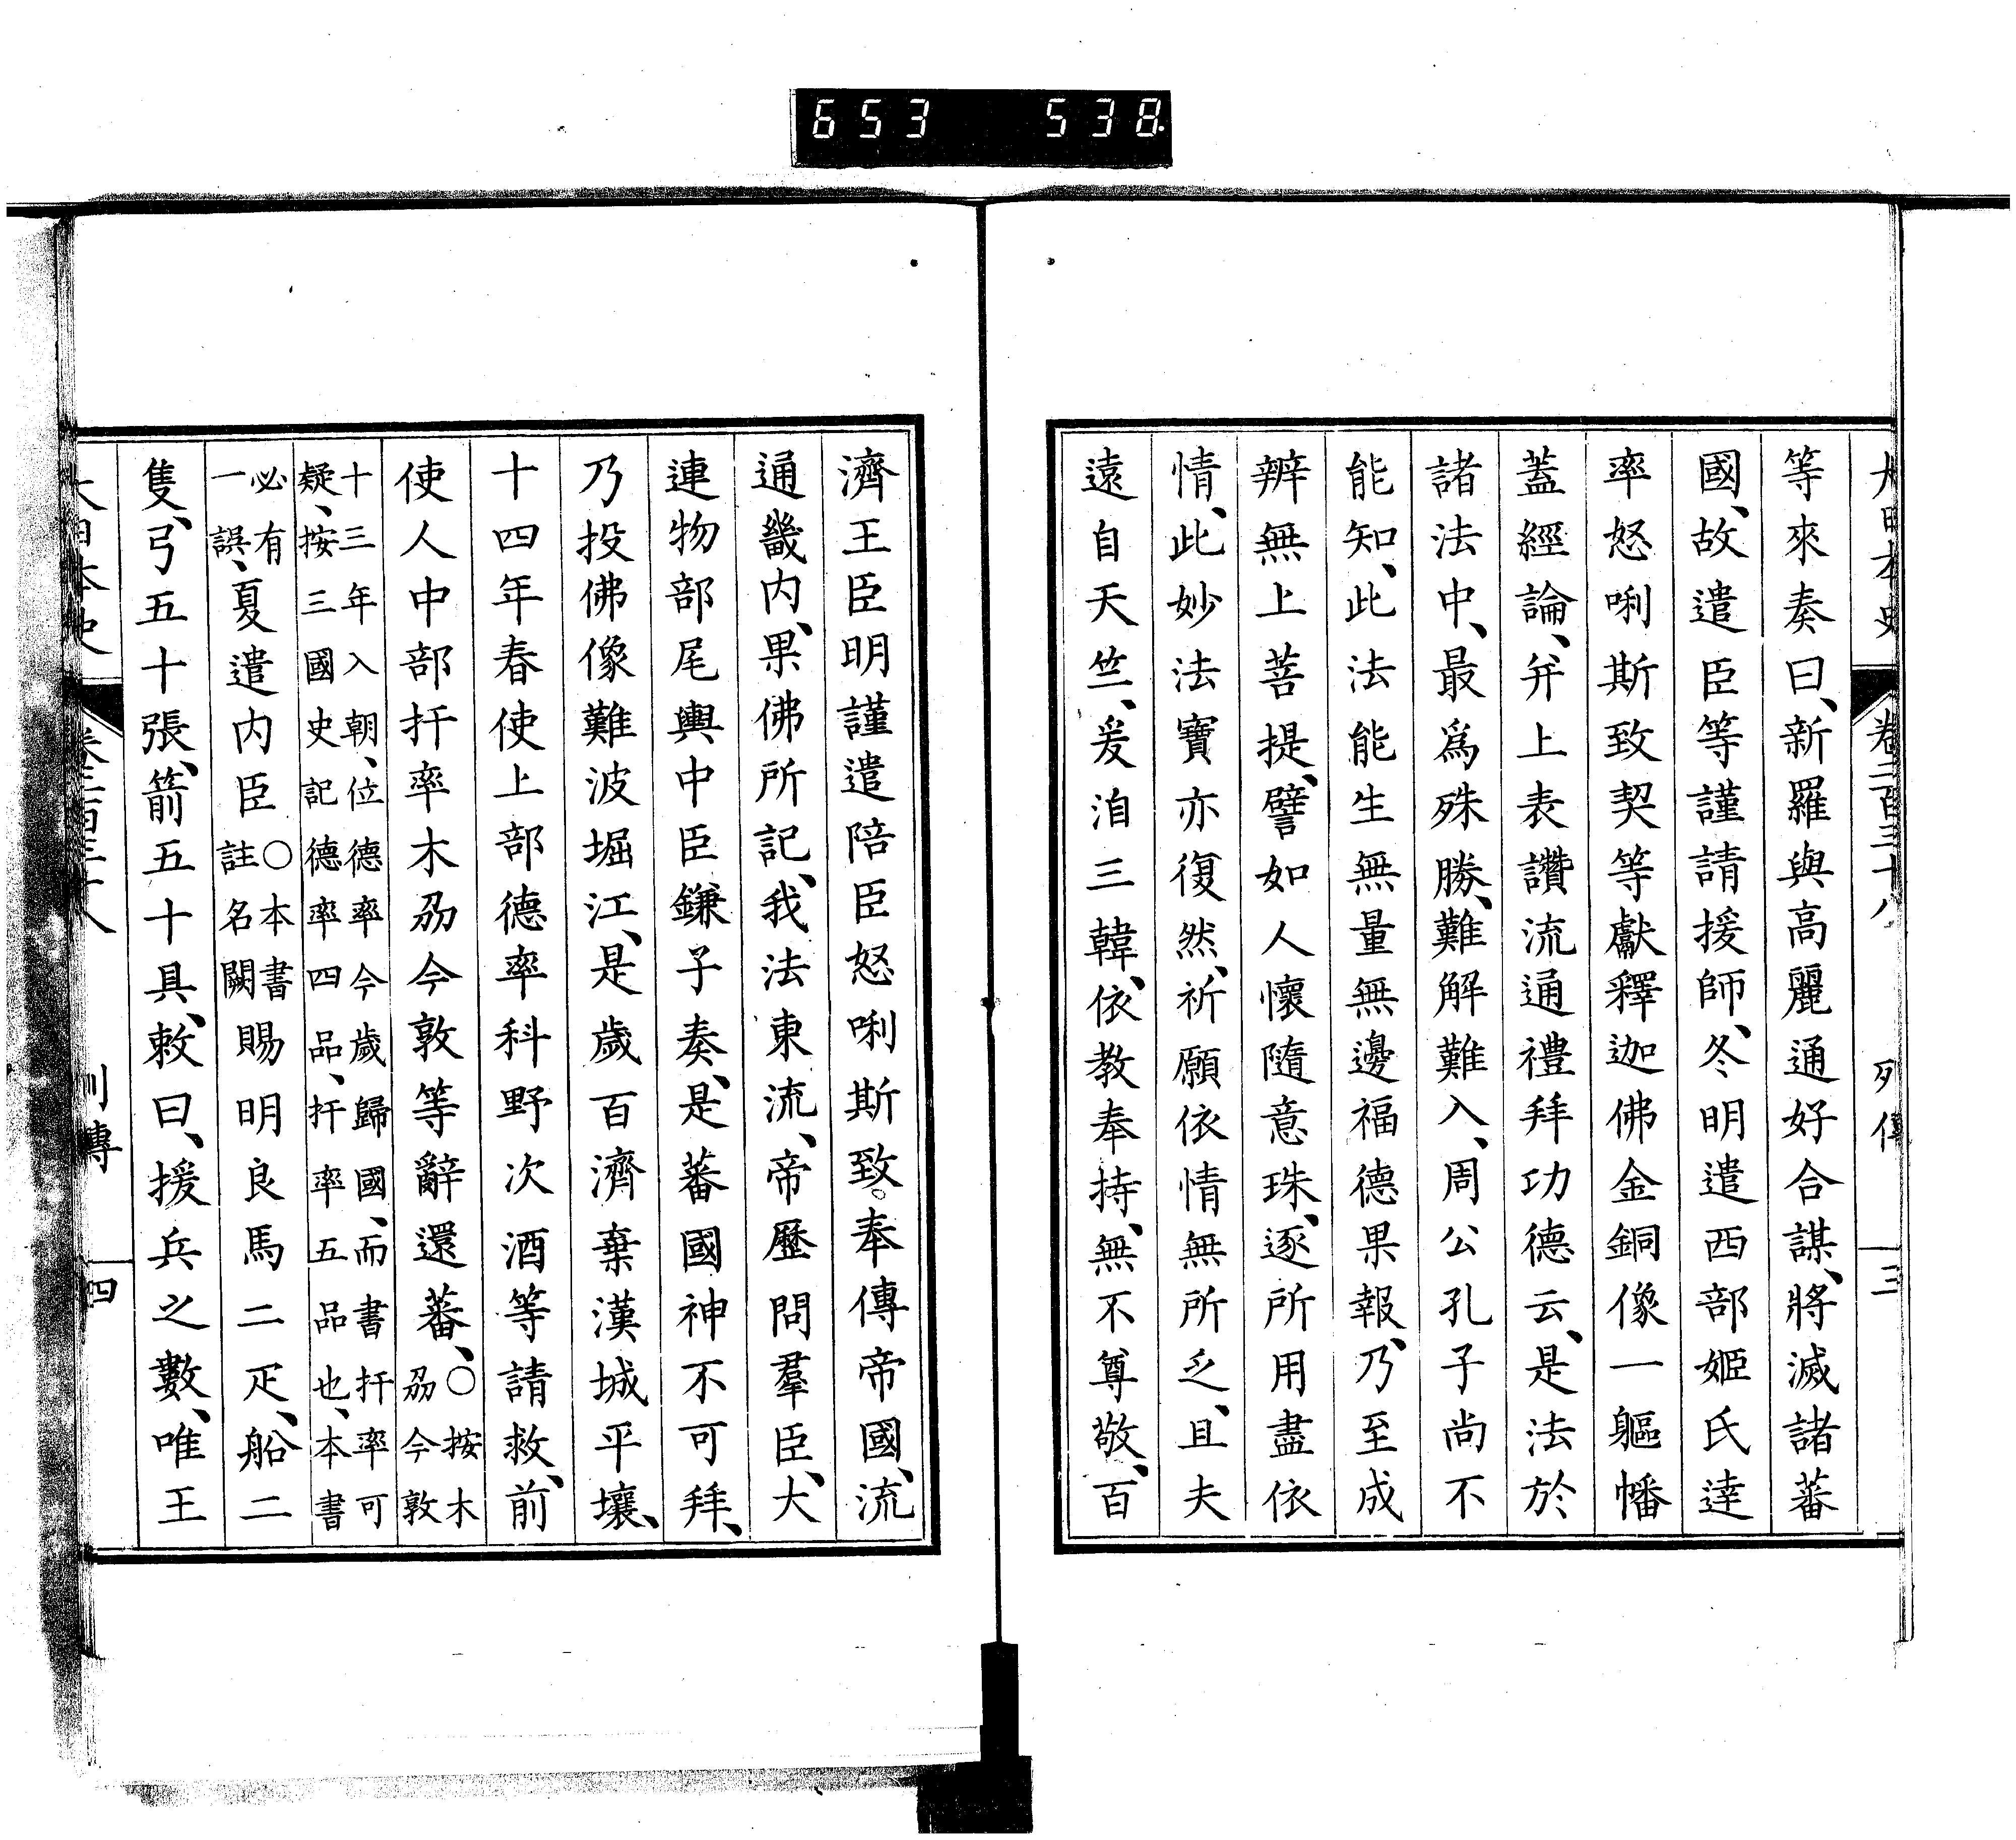 653 538
大日本史 卷二百三十八 列傳 三
等來奏曰、新羅與高麗通好合謀、將滅諸蕃
國、故遣臣等謹請援師、冬明遣西部姬氏達
率怒唎斯致契等獻釋迦佛金銅像一軀幡
蓋經論、幷上表讚流通禮拜功德云、是法於
諸法中、最爲殊勝、難解難入、周公孔子尚不
能知、此法能生無量無邊福德果報、乃至成
辨無上菩提、譬如人懷隨意珠、逐所用盡依
情、此妙法寶亦復然、祈願依情無所乏、且夫
遠自天竺、爰洎三韓、依教奉持、無不尊敬、百
濟王臣明謹遣陪臣怒唎斯致。奉傳帝國、流
通畿内、果佛所記、我法東流、帝歷問羣臣、大
連物部尾輿中臣鎌子奏、是蕃國神不可拜、
乃投佛像難波堀江、是歲百濟棄漢城平壤、
十四年春使上部德率科野次酒等請救、前
使人中部扞率木刕今敦等辭還蕃、○按木刕今敦
十三年入朝、位德率今歲歸國、而書扞率可疑、按三國史記德率四品、扞率五品也、本書
必有一誤、夏遣内臣○本書註名闕賜明良馬二疋、船二
隻、弓五十張、箭五十具、敕曰、援兵之數、唯王
大日本史 卷二百三十八 列傳 四